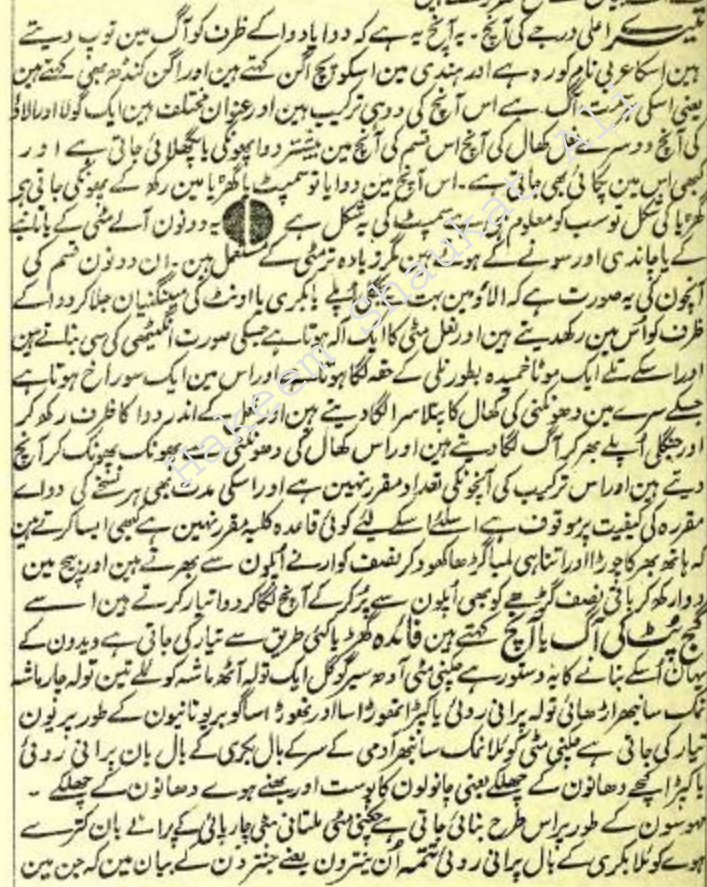 تیسرے اعلی درجے کی آنچ۔ یہ آنچ یہ ہے کہ دوا یا دوا کے ظرف کو آگ مین توپ دیتے
ہین اسکا عربی نام کورہ ہے اور ہندی مین اسکو پچ اگن کہتے ہین اور اگن کنڈھ بھی کہتے ہین
یعنی اسکی آگ ہے اس آنچ کی دو ہی ترکیب ہین اور عنوان مختلف ہین ایک گولا اور الاؤ
کی آنچ دوسرے کھال کی آنچ اس قسم کی آنچ مین بیشتر دوا پھونکی یا پگھلائی جاتی ہے اور
کبھی اس مین پکائی بھی جاتی ہے۔ اس آنچ مین دوا یا تو سمپٹ یا گھڑیا مین رکھ کے پھونکی جاتی ہی
گھڑیا کی شکل تو سب کو معلوم ہے سمپٹ کی یہ شکل ہے یہ دونون آلے مٹی کے یا تانبے
کے یا چاندی اور سونے کے ہوتے ہین مگر زیادہ تر مٹی کے مستعمل ہین۔ ان دونون قسم کی
آنچون کی یہ صورت ہے کہ الاؤ مین بہت جنگلی اُپلے یا بکری یا اونٹ کی مینگنیان جلا کر دوا کے
ظرف کو اُس مین رکھدیتے ہین اور نعل مٹی کا ایک آلہ ہوتا ہے جسکی صورت انگیٹھی کی سی بناتے ہین
اور اسکے تلے ایک موٹا خمیدہ بطور نلی کے حقہ لگا ہوتا ہے اور اس مین ایک سوراخ ہوتا ہے
جسکے سرے مین دھونکنی کی کھال کا پتلا سرا لگا دیتے ہین اور نعل کے اندر دوا کا ظرف رکھ کر
اور جنگلی اُپلے بھر کر آگ لگا دیتے ہین اور اس کھال کی دھونکنی سے پھونک پھونک کر آنچ
دیتے ہین اور اس ترکیب کی آنچونکی تعداد مقرر نہین ہے اور اسکی مدت بھی ہر نسخے کی دواے
مقررہ کی کیفیت پر موقوف ہے اسلئے اسکے لئے کوئی قاعدہ کلیہ مقرر نہین ہے کبھی ایسا کرتے ہین
کہ ہاتھ بھر کا چوڑا اور اتنا ہی لمبا گڑھا کھود کر نصف کو ارنے اُپلون سے بھرتے ہین اور بیچ مین
دوا رکھ کر باقی نصف گڑھے کو بھی اُپلون سے پُر کر کے آنچ لگا کر دوا تیار کرتے ہین اسے
گج پُٹ کی آگ یا آنچ کہتے ہین فائدہ گھڑیا کئی طریق سے تیار کی جاتی ہے ویدون کے
یہان اُسکے بنانے کا یہ دستور ہے چکنی مٹی آدھ سیر گوگل ایک تولہ آٹھ ماشہ کوئلے تین تولہ چار ماشہ
نمک سانبھر اڑھائی تولہ پرانی روئی یا کپڑا تھوڑا سا اور تھوڑا سا گوبر یونانیون کے طور پر یون
تیار کی جاتی ہے چکنی مٹی کوئلا نمک سانبھر آدمی کے سر کے بال بکری کے بال بان پرانی روئی
یا کپڑا کچے دھانون کے چھلکے یعنی چانولون کا پوست اور بھنے ہوے دھانون کے چھلکے۔
مہوسون کے طور پر اس طرح بنائی جاتی ہے چکنی مٹی ملتانی مٹی چارپائی کے پرانے بان کترے
ہوے کوئلا بکری کے بال پرانی روئی تتمہ اُن ینترون یعنے جنترون کے بیان مین کہ جن مین